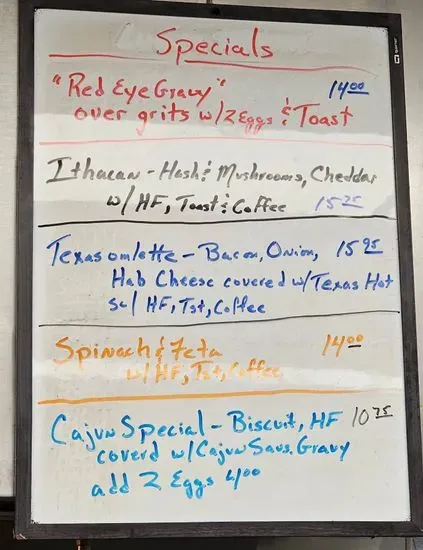 Specials
"Red Eye Gravy" 14.00
over grits w/ 2 Eggs & Toast
Ithacan - Hash & Mushrooms, Cheddar
w/ HF, Toast & Coffee 15.25
Texas omlette - Bacon, Onion, 15.95
Hab Cheese covered w/ Texas Hot
w/ HF, Tst, Coffee
Spinach & Feta 14.00
w/ HF, Tst, Coffee
Cajun Special - Biscuit, HF 10.75
coverd w/ Cajun Saus. Gravy
add 2 Eggs 4.00